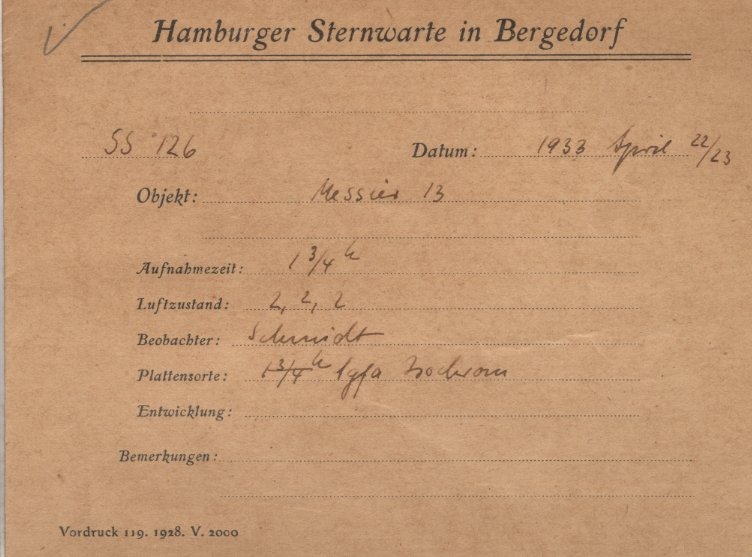 Hamburger Sternwarte in Bergedorf
SS 126 Datum: 1933 April 22/23
Objekt: Messier 13
Aufnahmezeit: 1 3/4 h
Luftzustand: 2, 2, 2
Beobachter: Schmidt
Plattensorte: 1 3/4 h Agfa Isochrom
Entwicklung:
Bemerkungen:
Vordruck 119. 1928. V. 2000